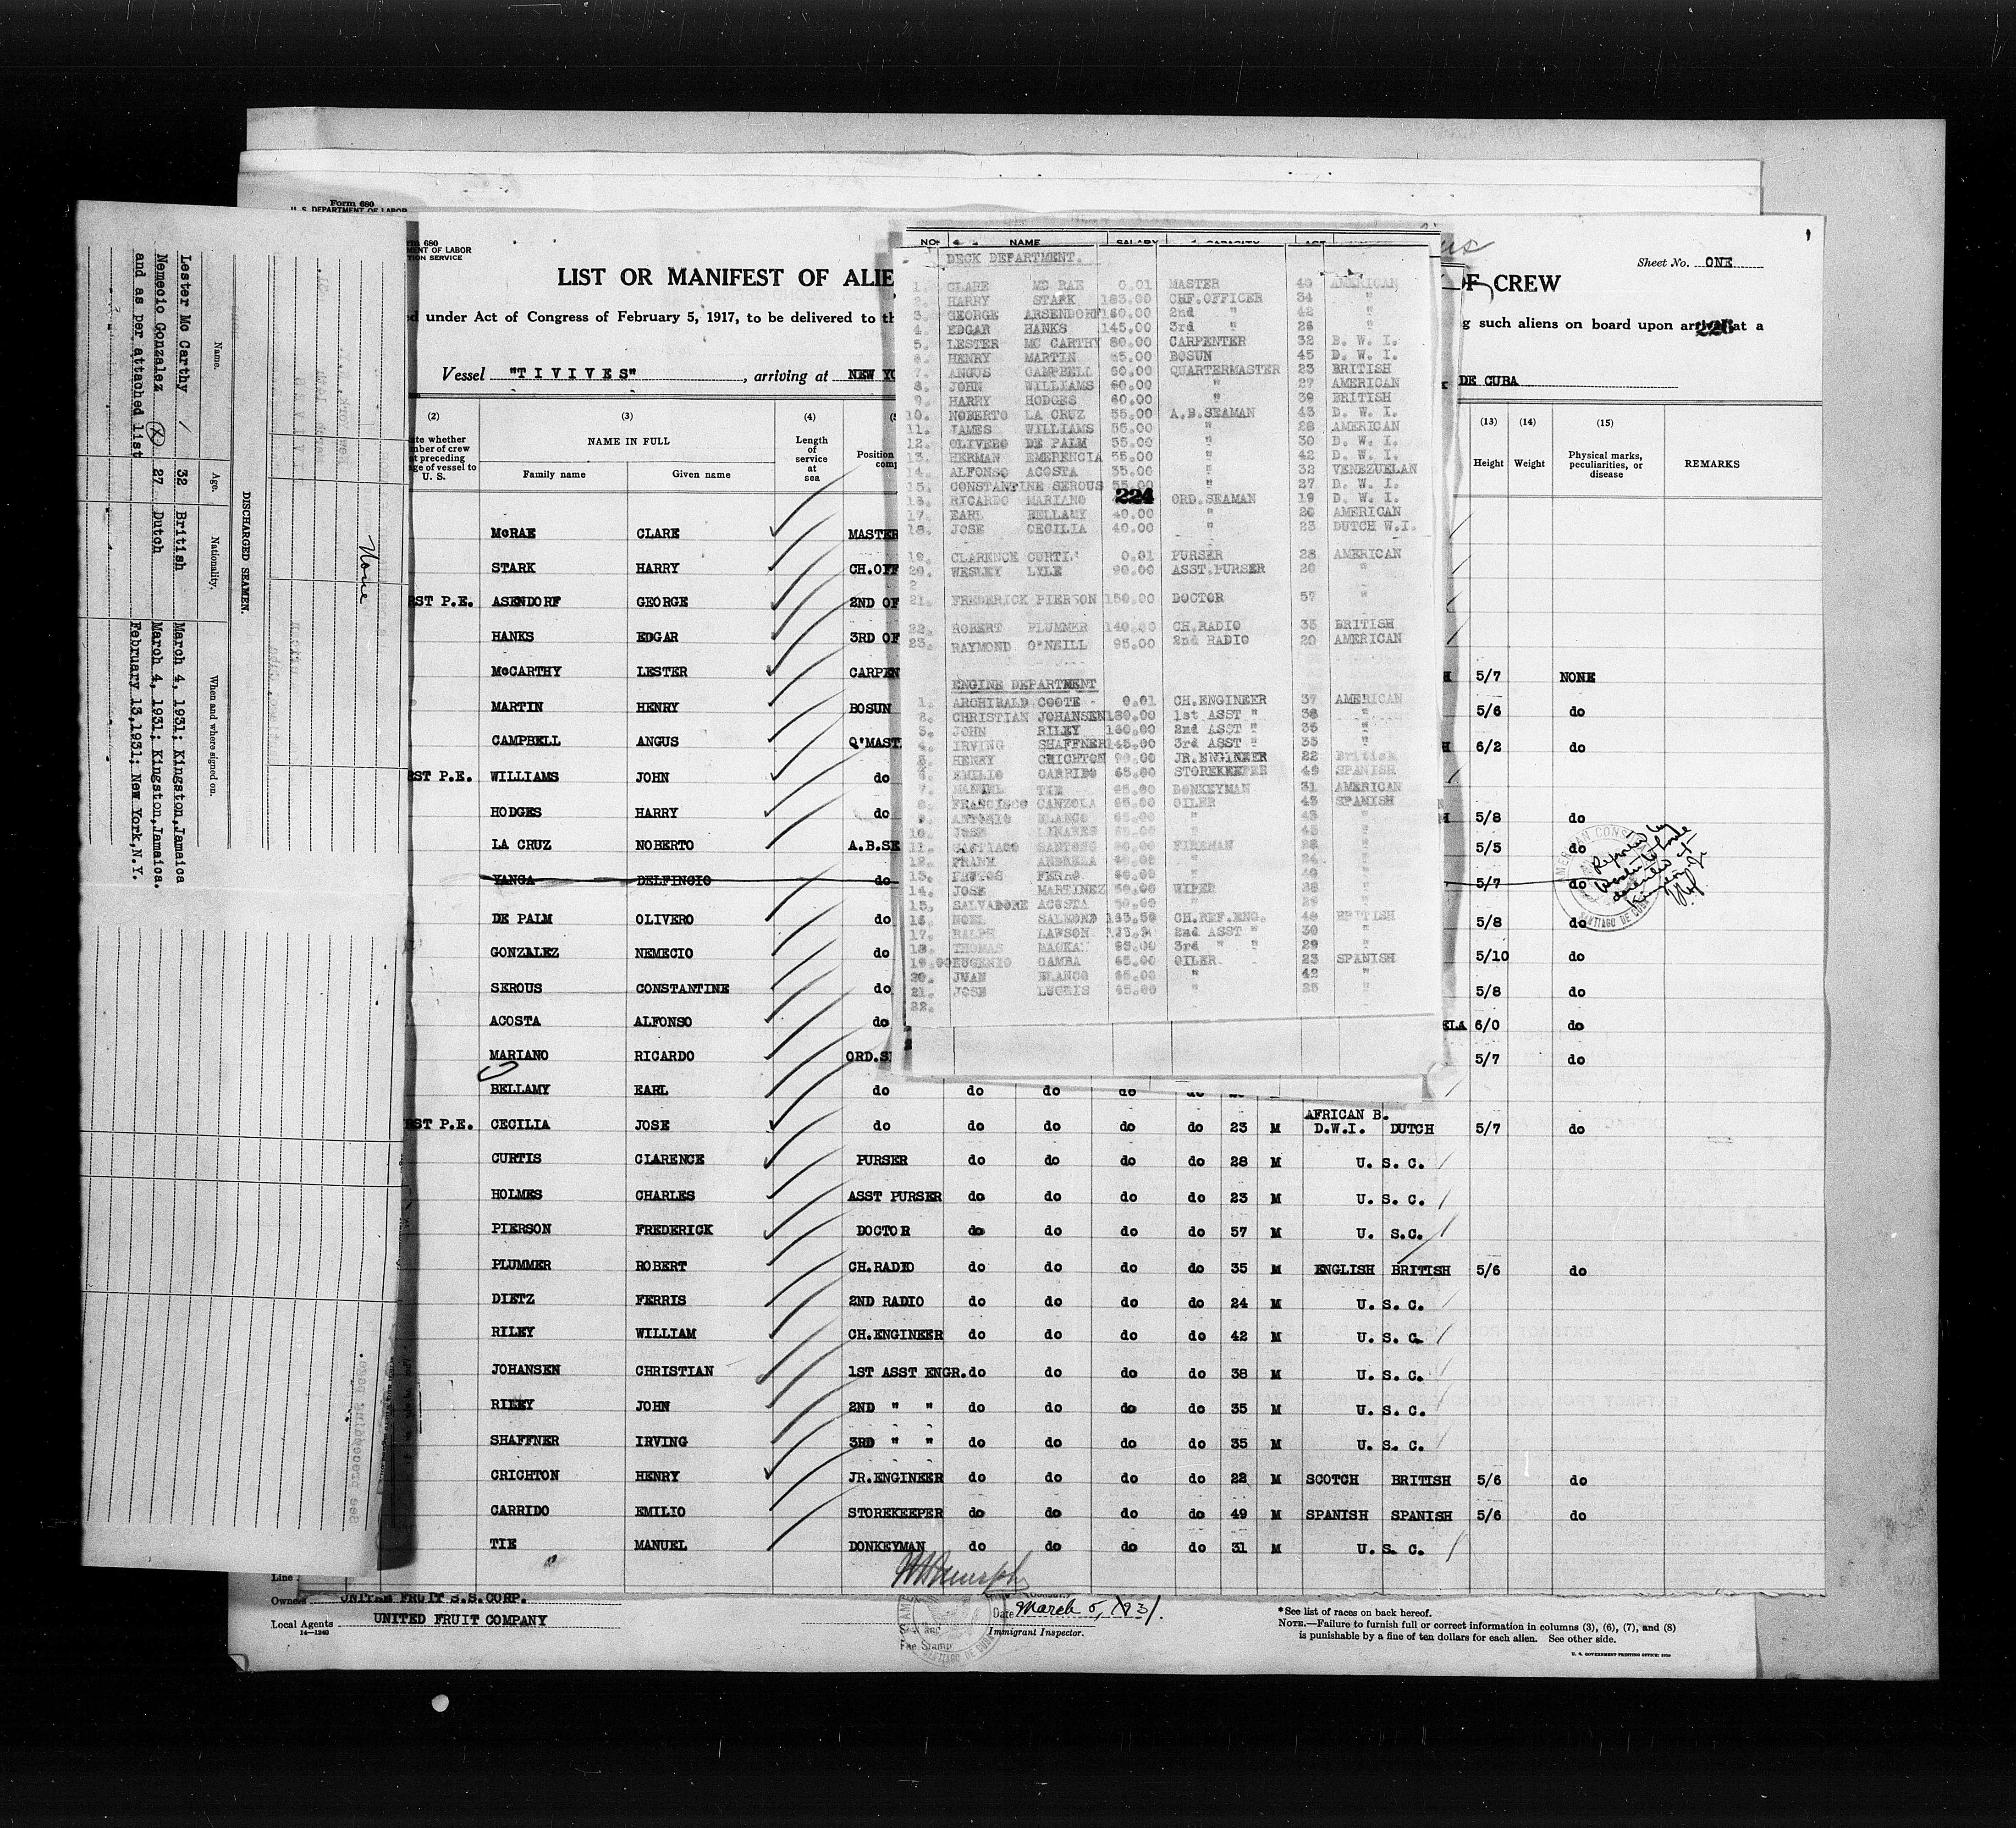 Form 680
U. S. DEPARTMENT OF LABOR
rm 680
MENT OF LABOR
TION SERVICE
Sheet No. ONE
LIST OR MANIFEST OF ALIE
OF CREW
d under Act of Congress of February 5, 1917, to be delivered to th
g such aliens on board upon arrival at a
226
Vessel "TIVIVES", arriving at NEW YO
DE CUBA
(2) (3) (4) (13) (14) (15)
te whether
mber of crew
t preceding
ge of vessel to
U. S.
NAME IN FULL
Family name Given name
Length
of
service
at
sea
Position
comp
Height Weight
Physical marks,
peculiarities, or
disease
REMARKS
McRAE CLARE MASTER
STARK HARRY CH.OFF
RST P.E. ASENDORF GEORGE 2ND OF
HANKS EDGAR 3RD OF
McCARTHY LESTER CARPEN 5/7 NONE
MARTIN HENRY BOSUN 5/6 do
CAMPBELL ANGUS Q'MAST 6/2 do
RST P.E. WILLIAMS JOHN do
HODGES HARRY do 5/8 do
LA CRUZ NOBERTO A.B.SE 5/5 do
YANGA DELFINCIO do 5/7 do
DE PALM OLIVERO do 5/8 do
GONZALEZ NEMECIO do 5/10 do
SEROUS CONSTANTINE do 5/8 do
ACOSTA ALFONSO do ELA 6/0 do
MARIANO RICARDO ORD.SE 5/7 do
BELLAMY EARL do do do do do
RST P.E. CECILIA JOSE do do do do do 23 M AFRICAN B. D.W.I. DUTCH 5/7 do
CURTIS CLARENCE PURSER do do do do 28 M U. S. C.
HOLMES CHARLES ASST PURSER do do do do 23 M U. S. C.
PIERSON FREDERICK DOCTOR do do do do 57 M U. S.C.
PLUMMER ROBERT CH.RADIO do do do do 35 M ENGLISH BRITISH 5/6 do
DIETZ FERRIS 2ND RADIO do do do do 24 M U. S. C.
RILEY WILLIAM CH.ENGINEER do do do do 42 M U. S. C.
JOHANSEN CHRISTIAN 1ST ASST ENGR. do do do do 38 M U. S. C.
RILEY JOHN 2ND " " do do do do 35 M U. S. C.
SHAFFNER IRVING 3RD " " do do do do 35 M U. S. C.
CRICHTON HENRY JR.ENGINEER do do do do 22 M SCOTCH BRITISH 5/6 do
CARRIDO EMILIO STOREKEEPER do do do do 49 M SPANISH SPANISH 5/6 do
TIE MANUEL DONKEYMAN do do do do 31 M U. S. C.
NO. NAME SALARY CAPACITY AGE
DECK DEPARTMENT.
1. CLARE MC RAE 0.01 MASTER 43 AMERICAN
2. HARRY STARK 183.00 CHF.OFFICER 34 "
3. GEORGE ARSENDORF 160.00 2nd " 42 "
4. EDGAR HANKS 145.00 3rd " 26 "
5. LESTER MC CARTHY 80.00 CARPENTER 32 B. W. I.
6. HENRY MARTIN 65.00 BOSUN 45 D. W. I.
7. ANGUS CAMPBELL 60.00 QUARTERMASTER 23 BRITISH
8. JOHN WILLIAMS 60.00 " 27 AMERICAN
9. HARRY HODGES 60.00 " 39 BRITISH
10. NOBERTO LA CRUZ 55.00 A.B.SEAMAN 43 D. W. I.
11. JAMES WILLIAMS 55.00 " 28 AMERICAN
12. OLIVERO DE PALM 55.00 " 30 D. W. I.
13. HERMAN EMERENCIA 55.00 " 42 D. W. I.
14. ALFONSO ACOSTA 55.00 " 32 VENEZUELAN
15. CONSTANTINE SEROUS 55.00 " 27 D. W. I.
16. RICARDO MARIANO 224 ORD.SEAMAN 19 D. W. I.
17. EARL BELLAMY 40.00 " 20 AMERICAN
18. JOSE CECILIA 40.00 " 23 DUTCH W.I.
19. CLARENCE CURTIS 0.01 PURSER 28 AMERICAN
20. WESLEY LYLE 90.00 ASST.PURSER 20 "
2
21. FREDERICK PIERSON 150.00 DOCTOR 57 "
22. ROBERT PLUMMER 140.00 CH.RADIO 35 BRITISH
23. RAYMOND O'NEILL 95.00 2nd RADIO 20 AMERICAN
ENGINE DEPARTMENT
1. ARCHIBALD COOTE 0.01 CH.ENGINEER 37 AMERICAN
2. CHRISTIAN JOHANSEN 180.00 1st ASST " 38 "
3. JOHN RILEY 160.00 2nd ASST " 35 "
4. IRVING SHAFFNER 145.00 3rd ASST " 35 "
5. HENRY CRICHTON 90.00 JR.ENGINEER 22 British
6. EMILIO CARRIDO 65.00 STOREKEEPER 49 SPANISH
7. MANUEL TIE 65.00 DONKEYMAN 31 AMERICAN
8. FRANCISCO CANZOLA 65.00 OILER 43 SPANISH
9. ANTONIO BLANCO 65.00 " 43 "
10. JOSE LINARES 65.00 " 45 "
11. SANTIAGO SANTONG 60.00 FIREMAN 28 "
12. FRANK ANDRELA 60.00 " 24 "
13. FRUTOS FERRO 60.00 " 49 "
14. JOSE MARTINEZ 50.00 WIPER 28 "
15. SALVADORE ACOSTA 50.00 " 29 "
16. NOEL SALMOND 183.50 CH.REF.ENG. 48 BRITISH
17. RALPH LAWSON 2nd ASST " 30 "
18. THOMAS MACKAY 95.00 3rd " " 29 "
19. EUGERIO CAMBA 65.00 OILER 23 SPANISH
20. JUAN BLANCO 65.00 " 42 "
21. JOSE LUCRIS 65.00 " 25 "
22.
DISCHARGED SEAMEN.
Name. Age. Nationality. When and where signed on.
Lester Mc Carthy 32 British March 4, 1931; Kingston,Jamaica
Nemecio Gonzalez 27 Dutch March 4, 1931; Kingston,Jamaica.
and as per attached list February 13,1931; New York,N.Y.
None
See preceding page.
AMERICAN CONSU
SANTIAGO DE CUBA
Line
Owners UNITED FRUIT S.S.CORP.
Local Agents UNITED FRUIT COMPANY
14—1240
Date March 5, 1931.
Immigrant Inspector.
Seal and
Fee Stamp
SANTIAGO DE CUBA
*See list of races on back hereof.
NOTE.—Failure to furnish full or correct information in columns (3), (6), (7), and (8)
is punishable by a fine of ten dollars for each alien. See other side.
U. S. GOVERNMENT PRINTING OFFICE: 1930